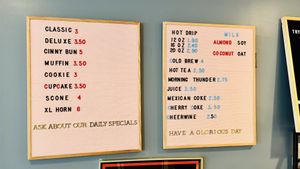 CLASSIC 3
DELUXE 3.50
CINNY BUN 5
MUFFIN 3.50
COOKIE 3
CUPCAKE 3.50
SCONE 4
XL HORN 6
ASK ABOUT OUR DAILY SPECIALS
HOT DRIP
12 OZ
16 OZ
20 OZ
MILK
ALMOND SOY
COCONUT OAT
COLD BREW 4
HOT TEA 2.50
MORNING THUNDER 2.75
JUICE 3.50
MEXICAN COKE 2.50
CHERRY COKE 3.50
CHEERWINE 2.50
HAVE A GLORIOUS DAY